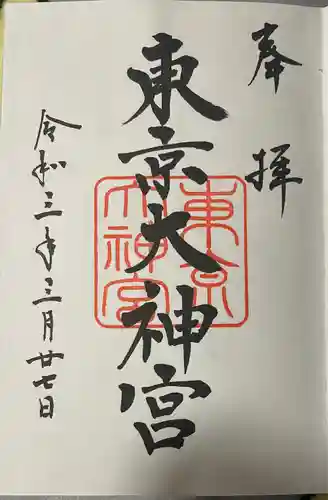 奉拝
東京大神宮
東京大神宮
令和三年三月廿七日